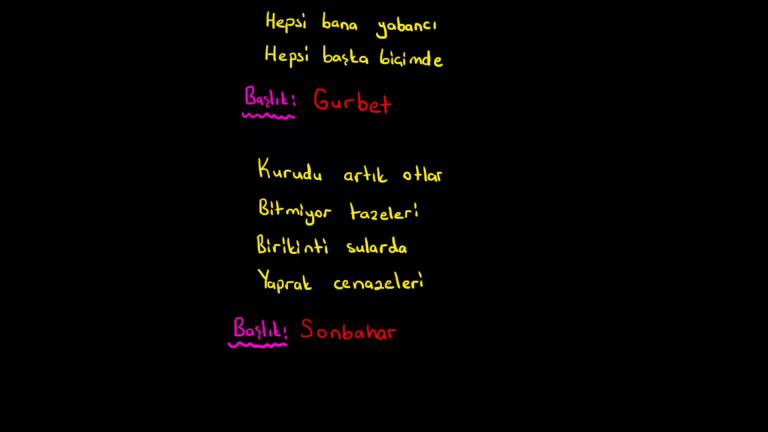 Hepsi bana yabancı
Hepsi başka biçimde
Başlık: Gurbet
Kurudu artık otlar
Bitmiyor tazeleri
Birikinti sularda
Yaprak cenazeleri
Başlık: Sonbahar